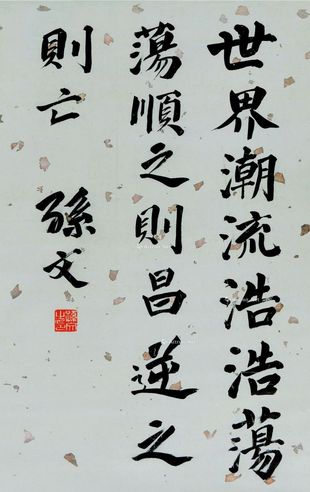 世界潮流浩浩蕩
蕩順之則昌逆之
則亡
孫文